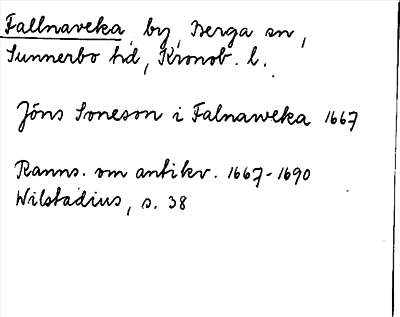 Fallnaveka, by, Berga sn,
Sunnerbo hd, Kronob. l.
Jöns Soneson i Falnaweka 1667
Ranns. om antikv. 1667-1690
Wilstadius, s. 38